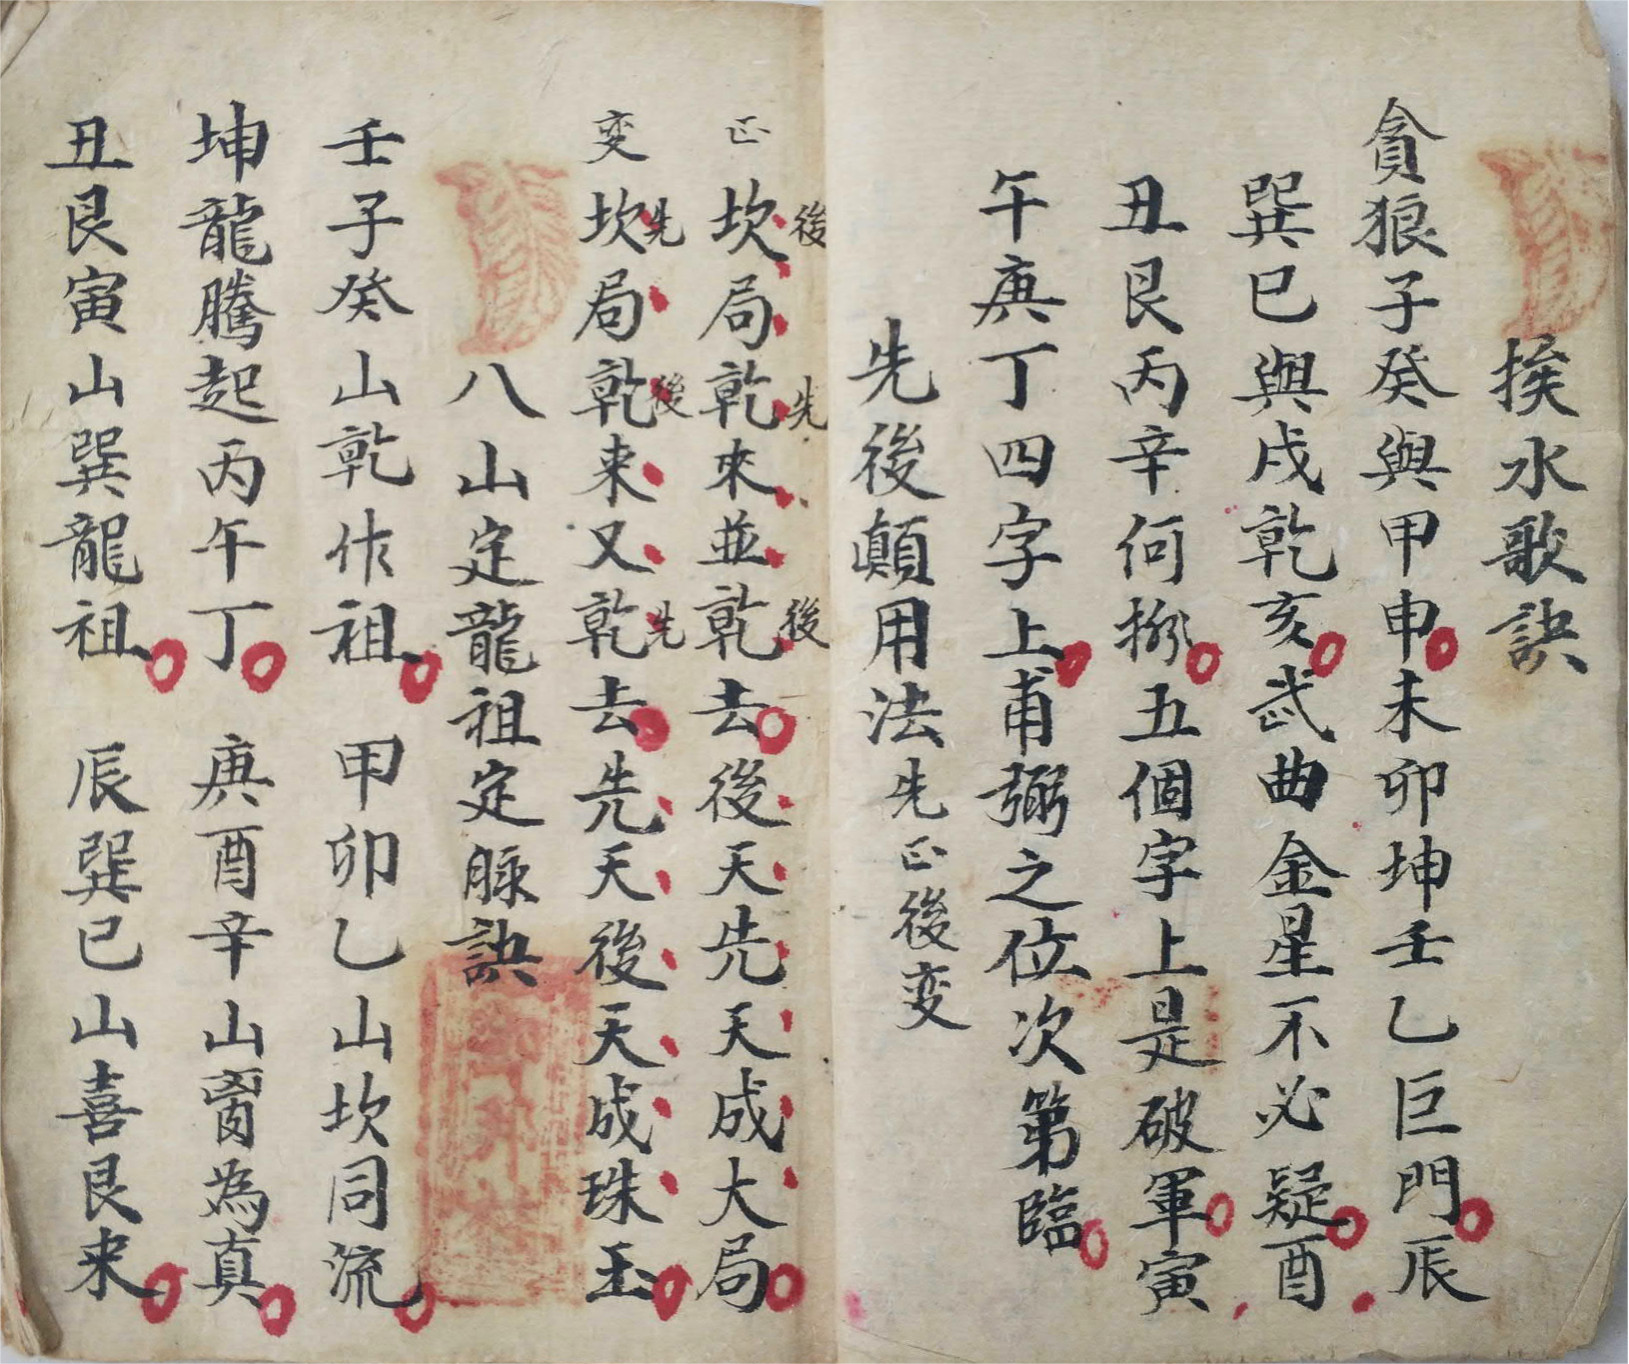 挨水歌訣
貪狼子癸與甲申未卯坤壬乙巨門辰
巽巳與戌乾亥武曲金星不必疑酉
丑艮丙辛何挪五個字上是破軍寅
午庚丁四字上甫弼之位次第臨
先後顛用法先正後变
正坎局乾來並乾去後天先天成大局
後先後
变坎局乾来又乾去先天後天成珠玉
先後先
八山定龍祖定脉訣
壬子癸山乾作祖 甲卯乙山坎同流
坤龍騰起丙午丁 庚酉辛山离為真
丑艮寅山巽龍祖 辰巽巳山喜艮来